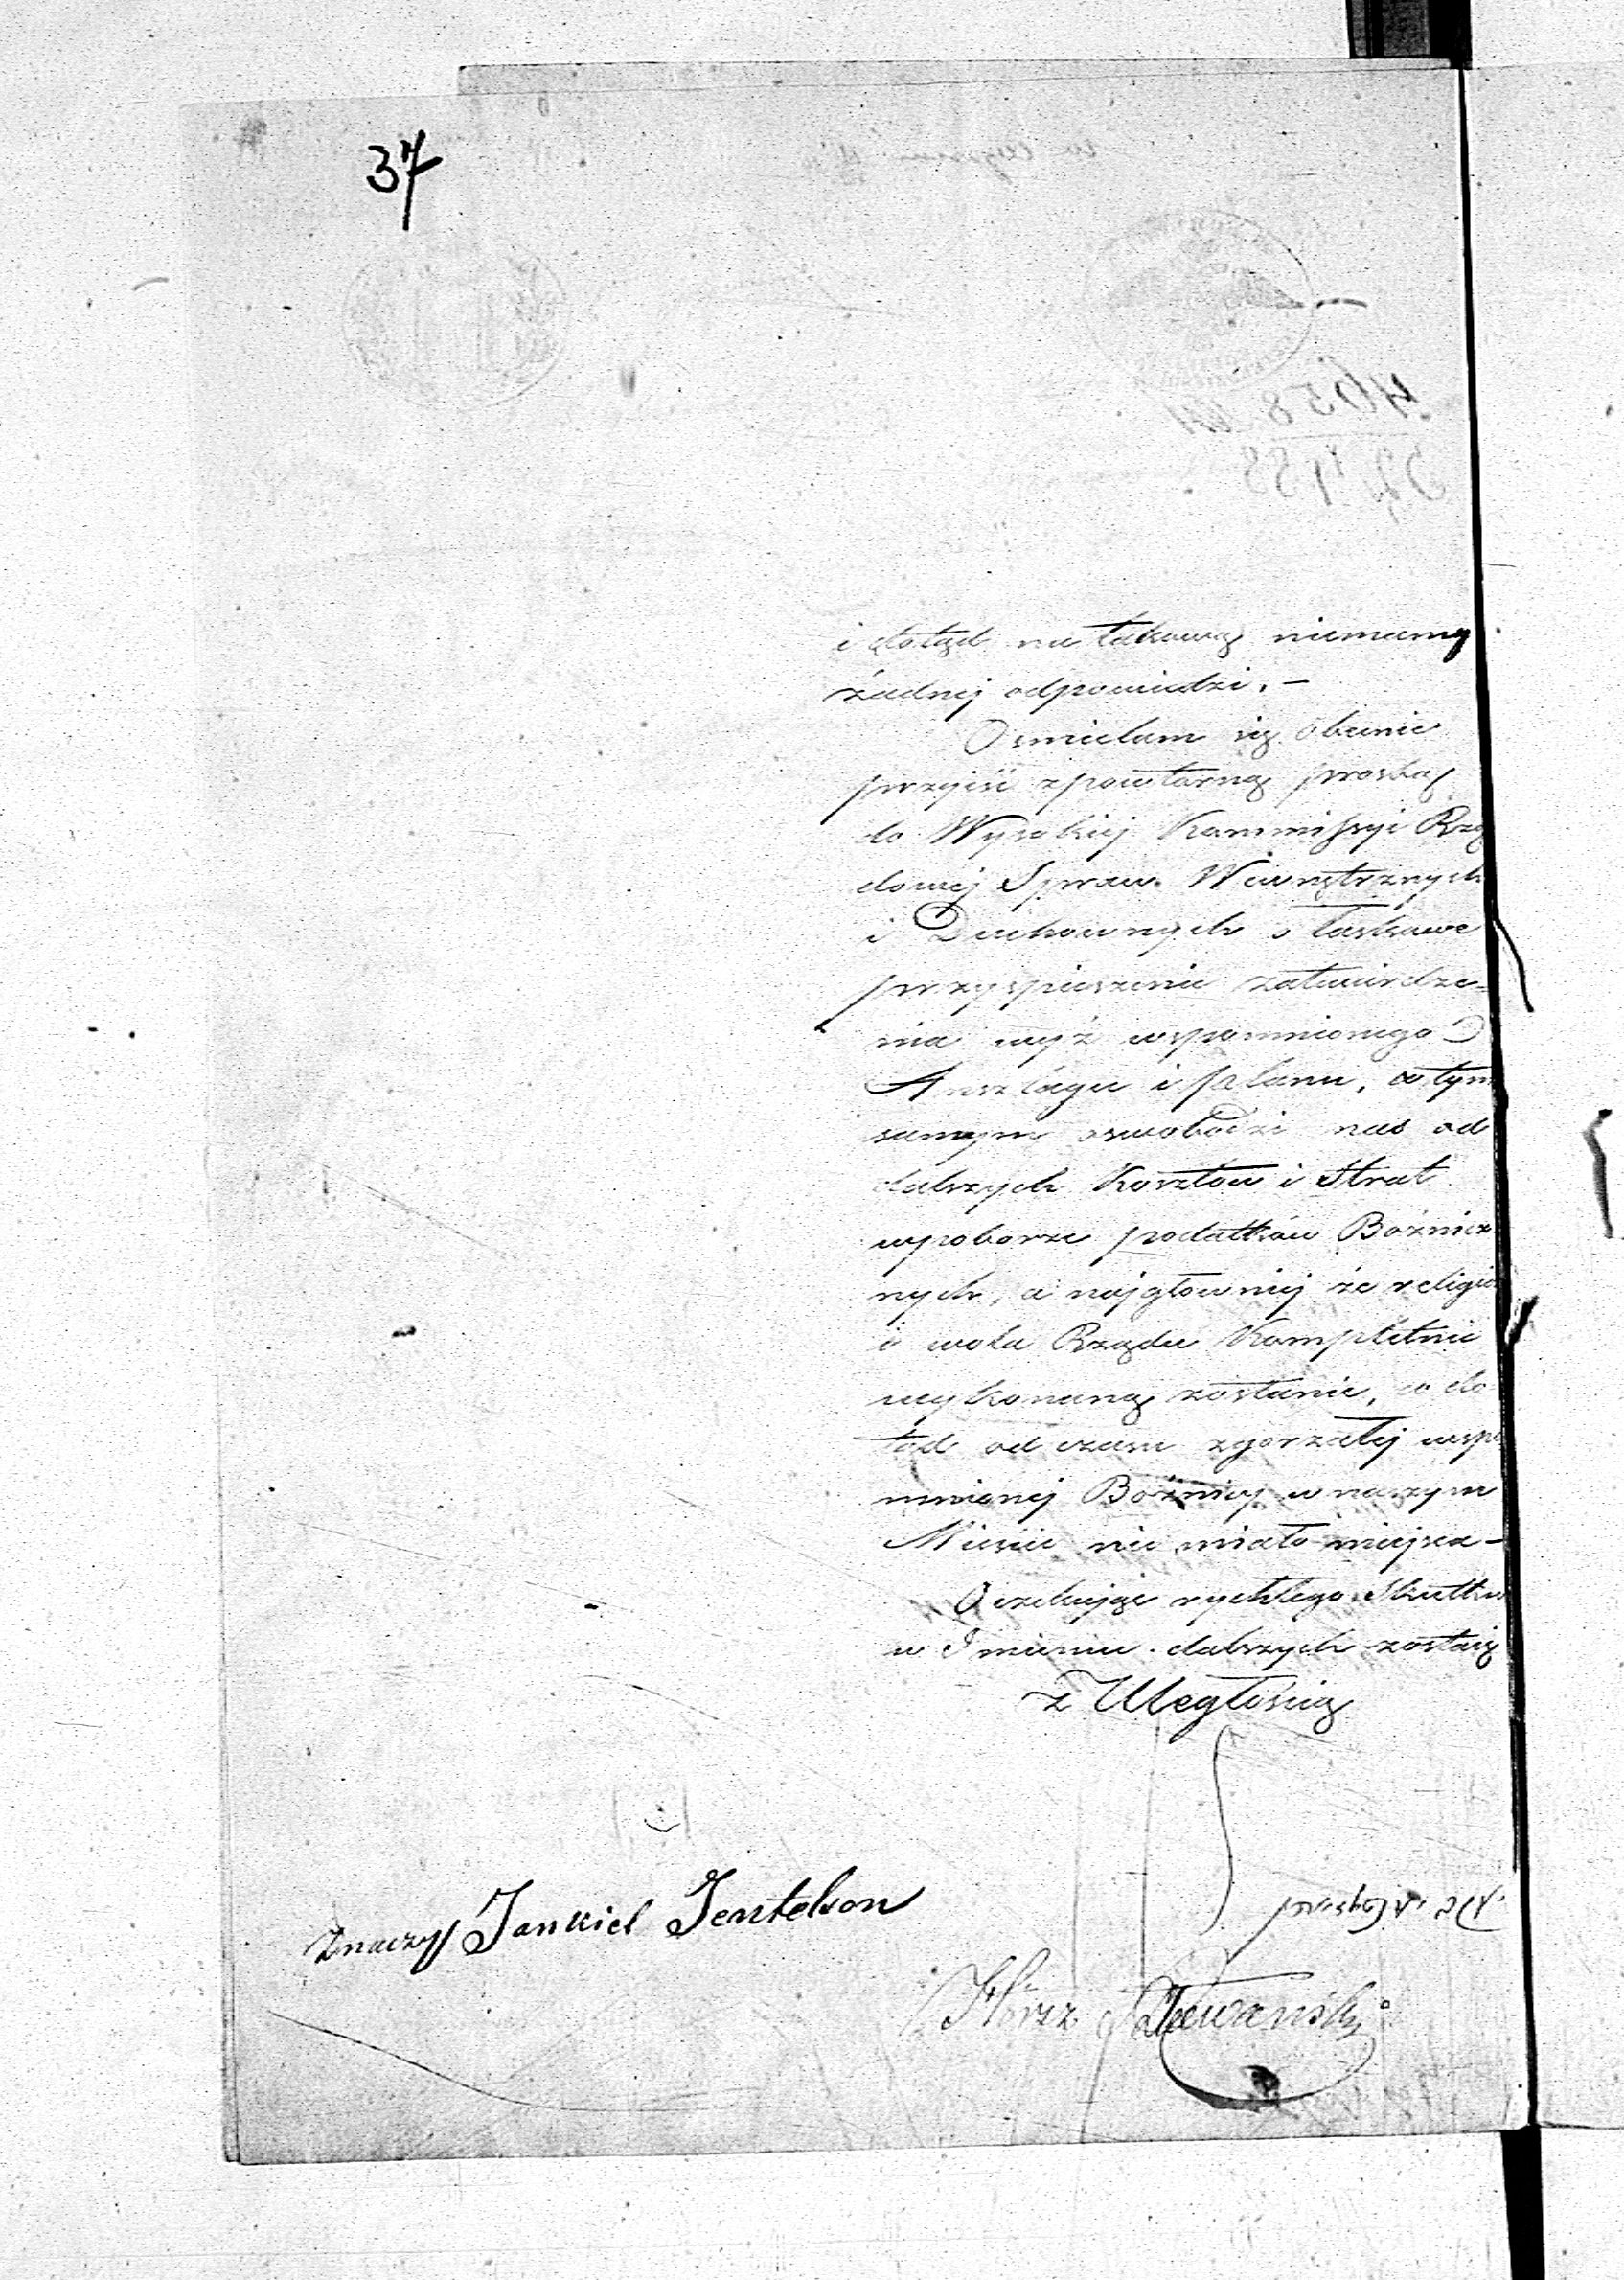 37
i dotąd na takową niemamy
żadnej odpowiedzi. –
Osmielam się obecnie
przyjść z powtorną prosbą
do Wysokiej Kommissyi Rzą
dowej Spraw Wewnętrznych
i Duchownych o łaskawe
przyspieszenie zatwierdze=
nia wyż wspomnionego
Anszlagu i planu, a tym
samym oswobodzi nas od
dalszych Kosztow i Strat
w poborze podatków Bożnicz
nych, a najgłowniej że religia
i wola Rządu Kompletnie
wykonaną zostanie, co do
tąd od czasu zgorzałej wspo
mnionej Bóżnicy w naszym
Mieście nie miało miejsca –
Oczekując rychłego Skutku
w Imieniu dalszych zostaię
z Uległością
Znaczy Jankiel Jentelson